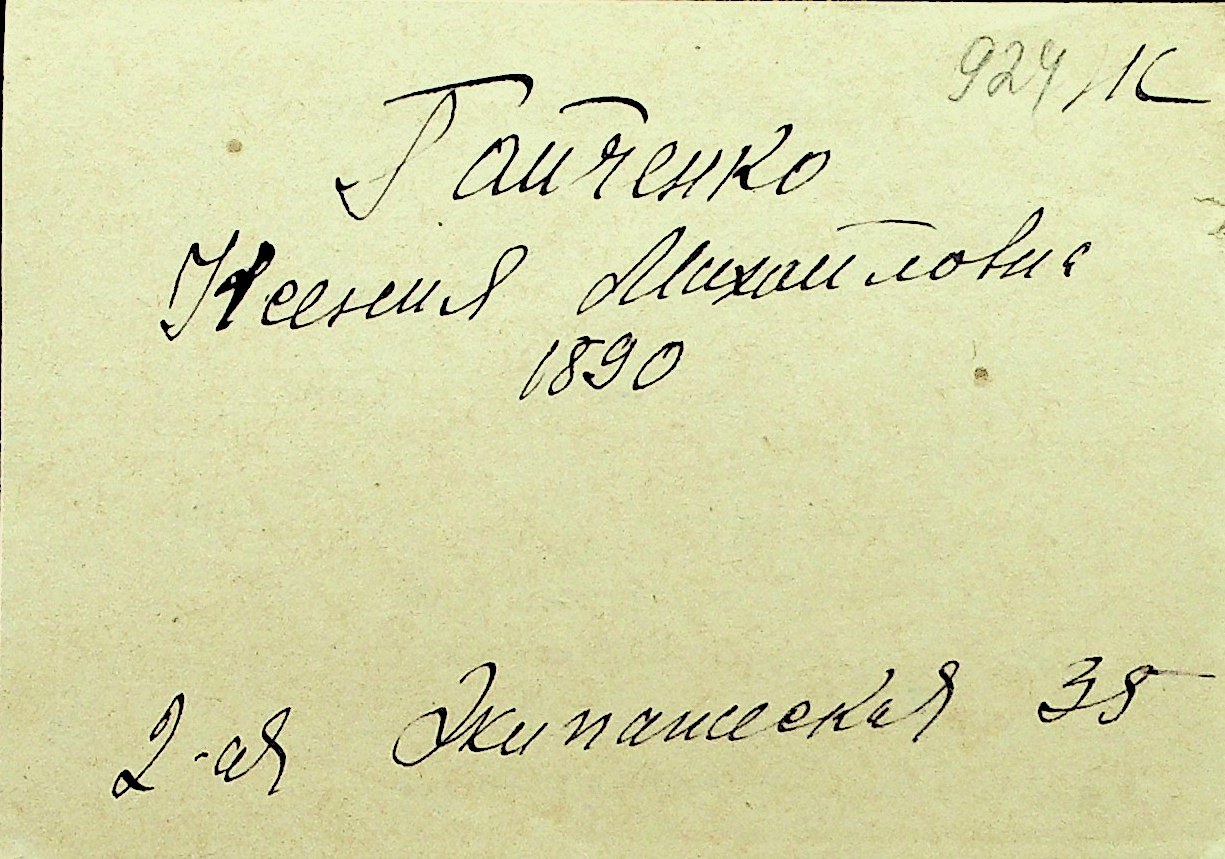 924/К
Гайченко
Ксения Михайловна
1890
2-ая Экипажеская 35